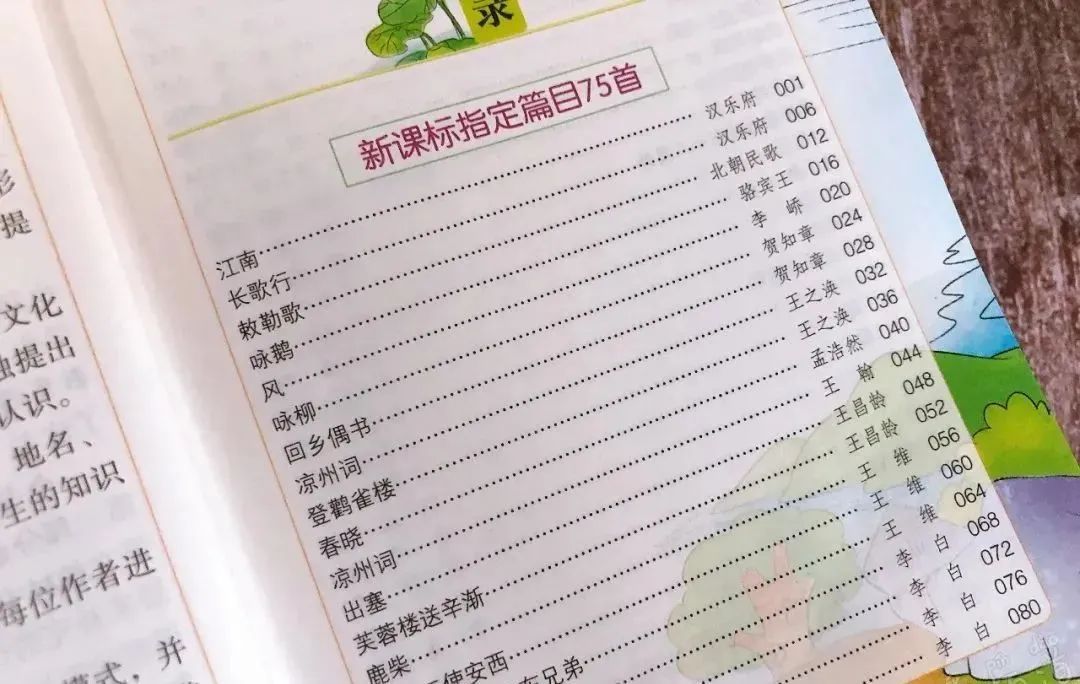 提
文化
提出
认识。
地名、
生的知识
每位作者进
模式，并
录
新课标指定篇目75首
江南……汉乐府 001
长歌行……汉乐府 006
敕勒歌……北朝民歌 012
咏鹅……骆宾王 016
风……李峤 020
咏柳……贺知章 024
回乡偶书……贺知章 028
凉州词……王之涣 032
登鹳雀楼……王之涣 036
春晓……孟浩然 040
凉州词……王翰 044
出塞……王昌龄 048
芙蓉楼送辛渐……王昌龄 052
鹿柴……王维 056
使安西……王维 060
兄弟……王维 064
李白 068
李白 072
李白 076
李白 080